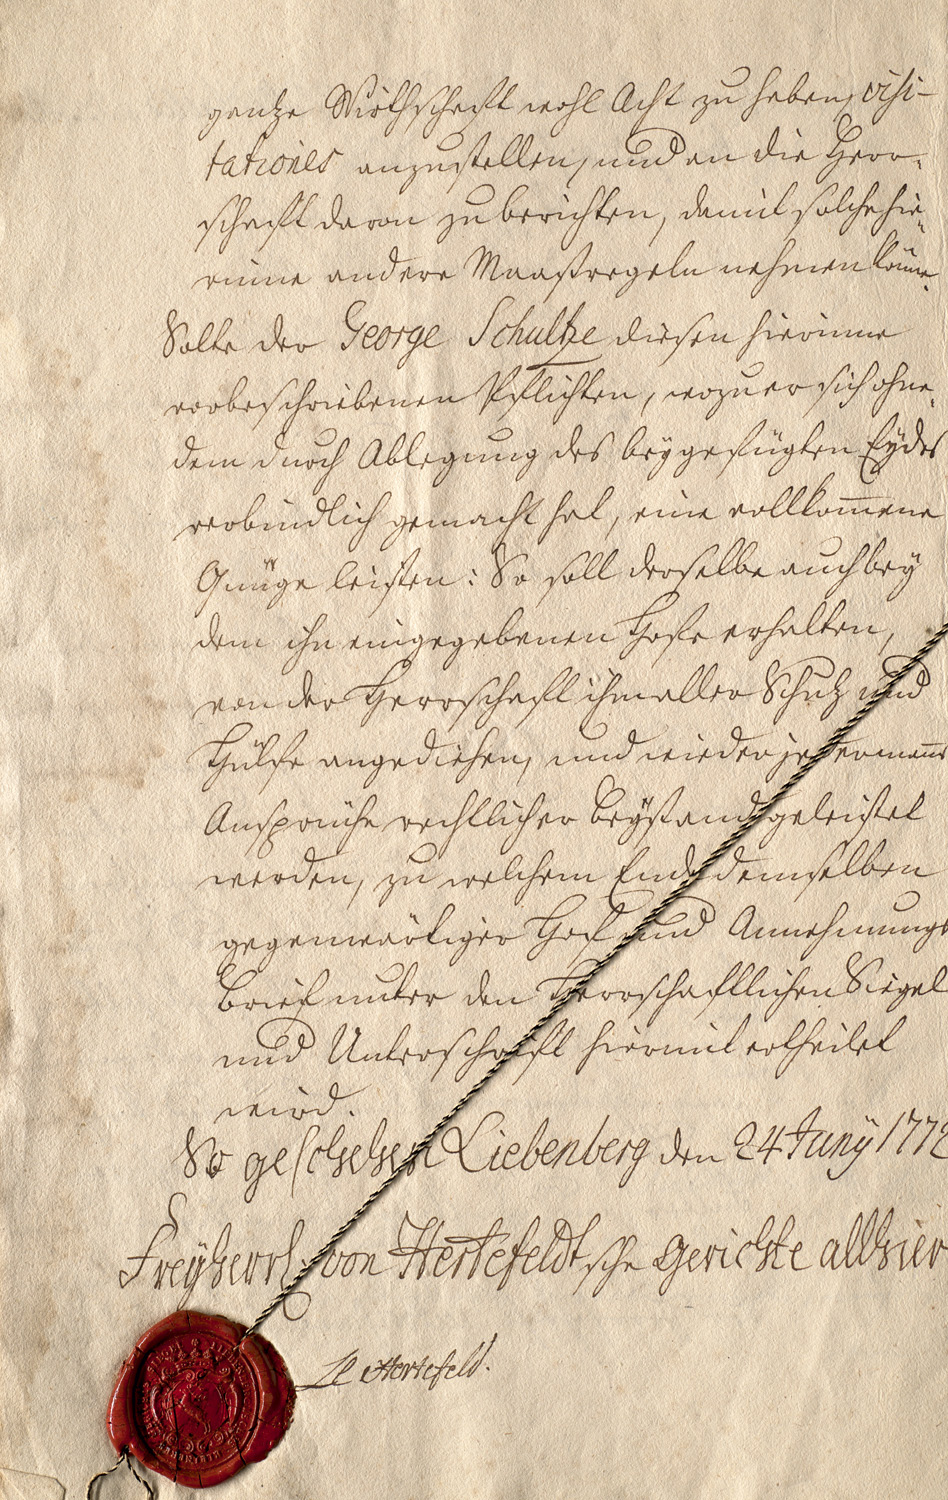 gantze Wirthschafft wohl Acht zu haben, visi-
tationes anzustellen, und an die Herr-
schafft davon zu berichten, damit solche hie-
rinne andere Maasregeln nehmen könne.
Solte der George Schultze diesen hierinne
vorbeschriebenen Pflichten, wozu er sich ohne-
dem durch Ablegung des beygefügten Eydes
verbindlich gemacht hat, eine vollkom̄ene
Gnüge leisten: So soll derselbe auch bey
dem ihn eingegebenen Hofe erhalten,
von der Herrschafft ihm aller Schutz und
Hülfe angediehen, und wieder jedermanns
Ansprüche rechtlicher Beystand geleistet
werden, zu welchem Ende demselben
gegenwärtiger Hof und Annehmungs
Brief unter den Herrschafftlichen Siegel
und Unterschrifft hiermit ertheilet
wird.
So geschehen Liebenberg den 24 Juny 1772
Freyherrl. von Hertefeldtsche Gerichte allhier
Hertefeld.